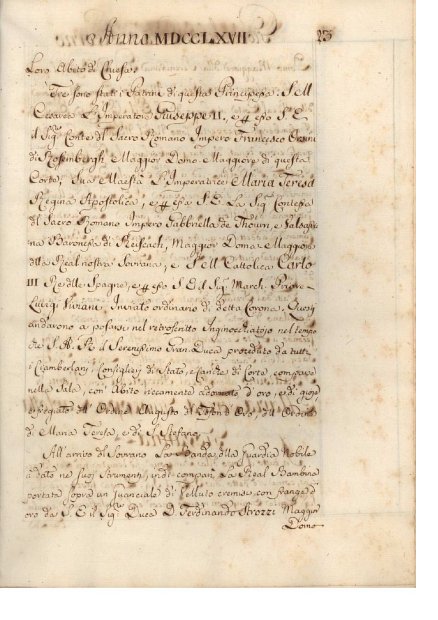 Anno MDCCLXVII 23
Loro Abito di Chiesa
Tre sono stati i Patrini di questa Principessa. S. M
Cesarea L'Imperatore Giuseppe II, e p esso S. E
il Sig. Conte del Sacro Romano Impero Francesco Orsini
di Rosembergh Maggior Domo Maggiore di questa
Corte, Sua Maestà L'Imperatrice Maria Teresa
Regina Apostolica, e p essa S. E. La Sig. Contessa
del Sacro Romano Impero Gabbriella de Thourn, e
na Baronessa di Reischach, Maggior Doma Maggiore
della Real nostra Sovrana, e S. M Cattolica Carlo
III Re delle Spagne, e p esso S. E. il Sig. March. Priore
Luigi Viviani, Inviato ordinario di detta Corona, Quasi
andarono a posarsi nel retroscritto Inginocchiatojo nel tempo
che S. A. R. il Serenissimo Gran Duca preceduto da tutti
i Ciamberlani, Consiglieri di Stato, e Cariche di Corte comparve
nella Sala, con Abito riccamente adornato d'oro, e di gioje
e fregiato dell'Ordine Augusto di Toson d'Oro, dell'Ordine
di Maria Teresa, e di S. Stefano
All'arrivo del Sovrano La Banda della Guardia Nobile
à dato ne suoi strumenti, indi comparì La Real Bambina
portata sopra un Guanciale di Velluto cremisi con frange d'
oro da S. E. il Sig. Duca D. Ferdinando Strozzi Maggior
Domo